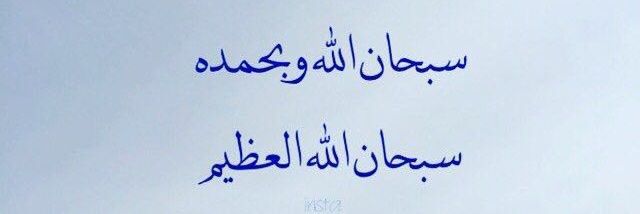 سبحان الله وبحمده
سبحان الله العظيم
insta